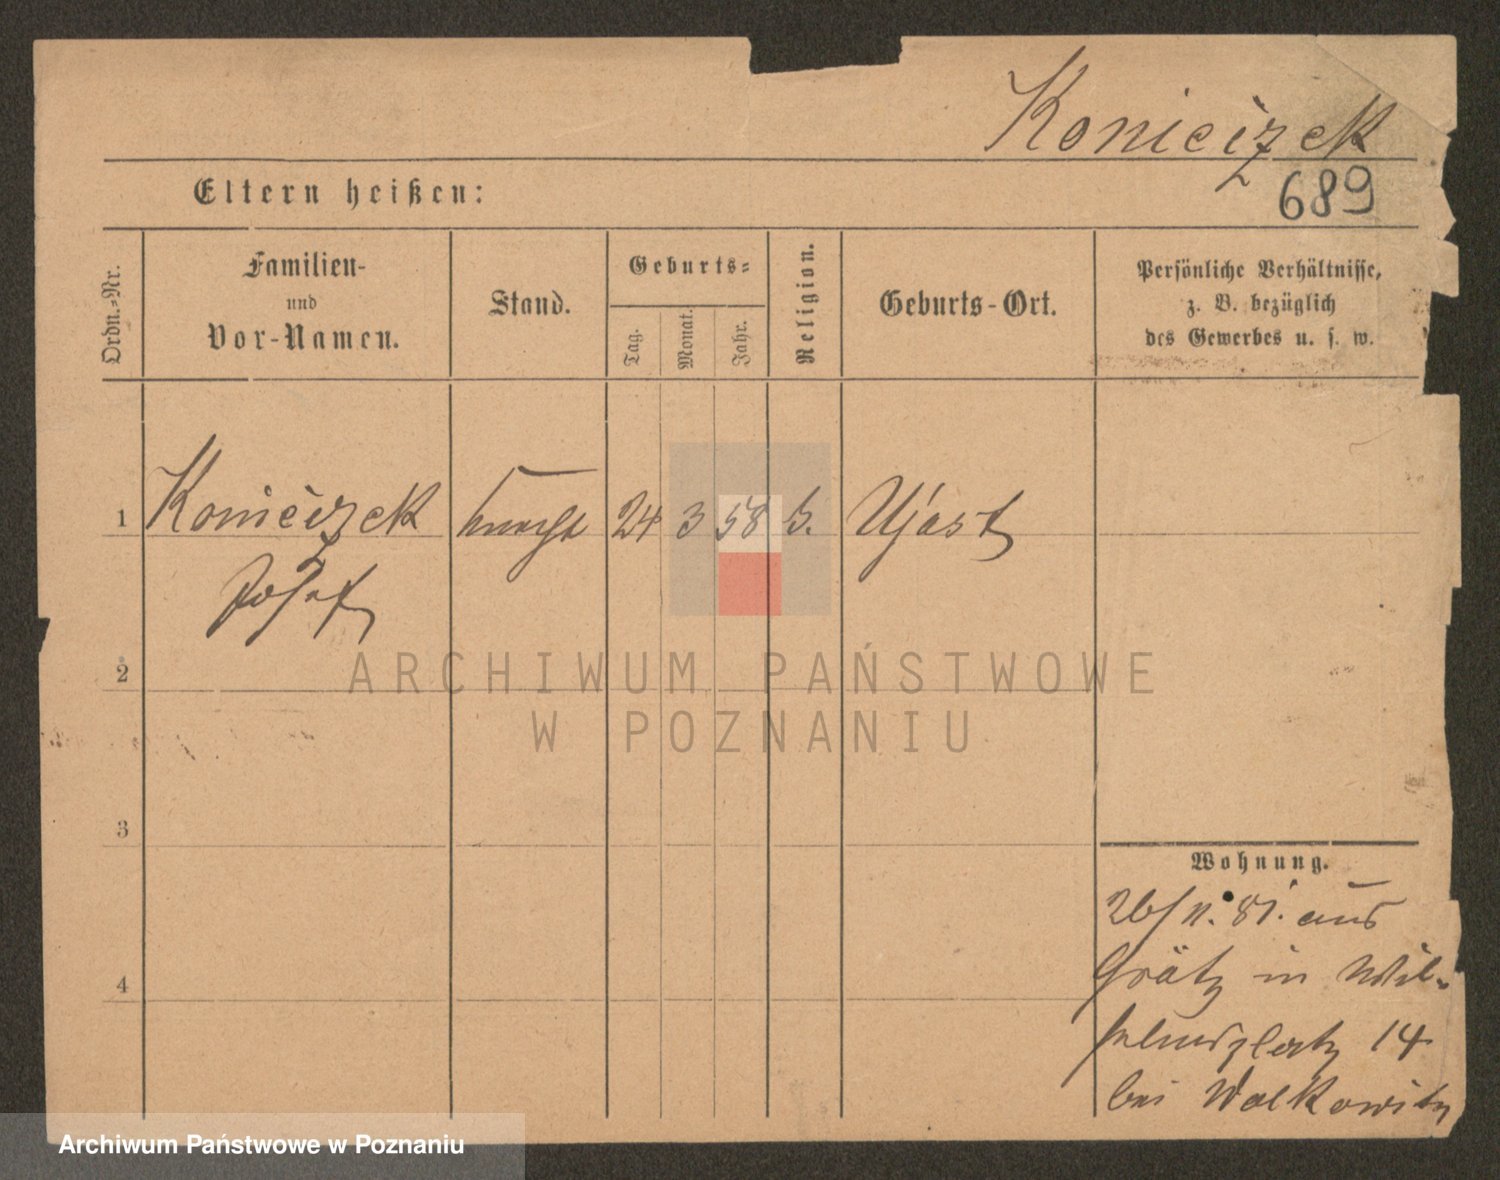 Koniećzek
689
Eltern heißen:
Ordn.-Nr.
Familien-
und
Vor-Namen.
Stand.
Geburts-
Tag.
Monat.
Jahr.
Religion.
Geburts-Ort.
Persönliche Verhältnisse,
z. B. bezüglich
des Gewerbes u. s. w.
1
Koniećzek
Josef
Knecht
24
3
58
Ujast
2
3
4
Wohnung.
26/11. 81. aus
Grätz in Wil-
helmsplatz 14
bei Walkowitz
ARCHIWUM PAŃSTWOWE
W POZNANIU
Archiwum Państwowe w Poznaniu